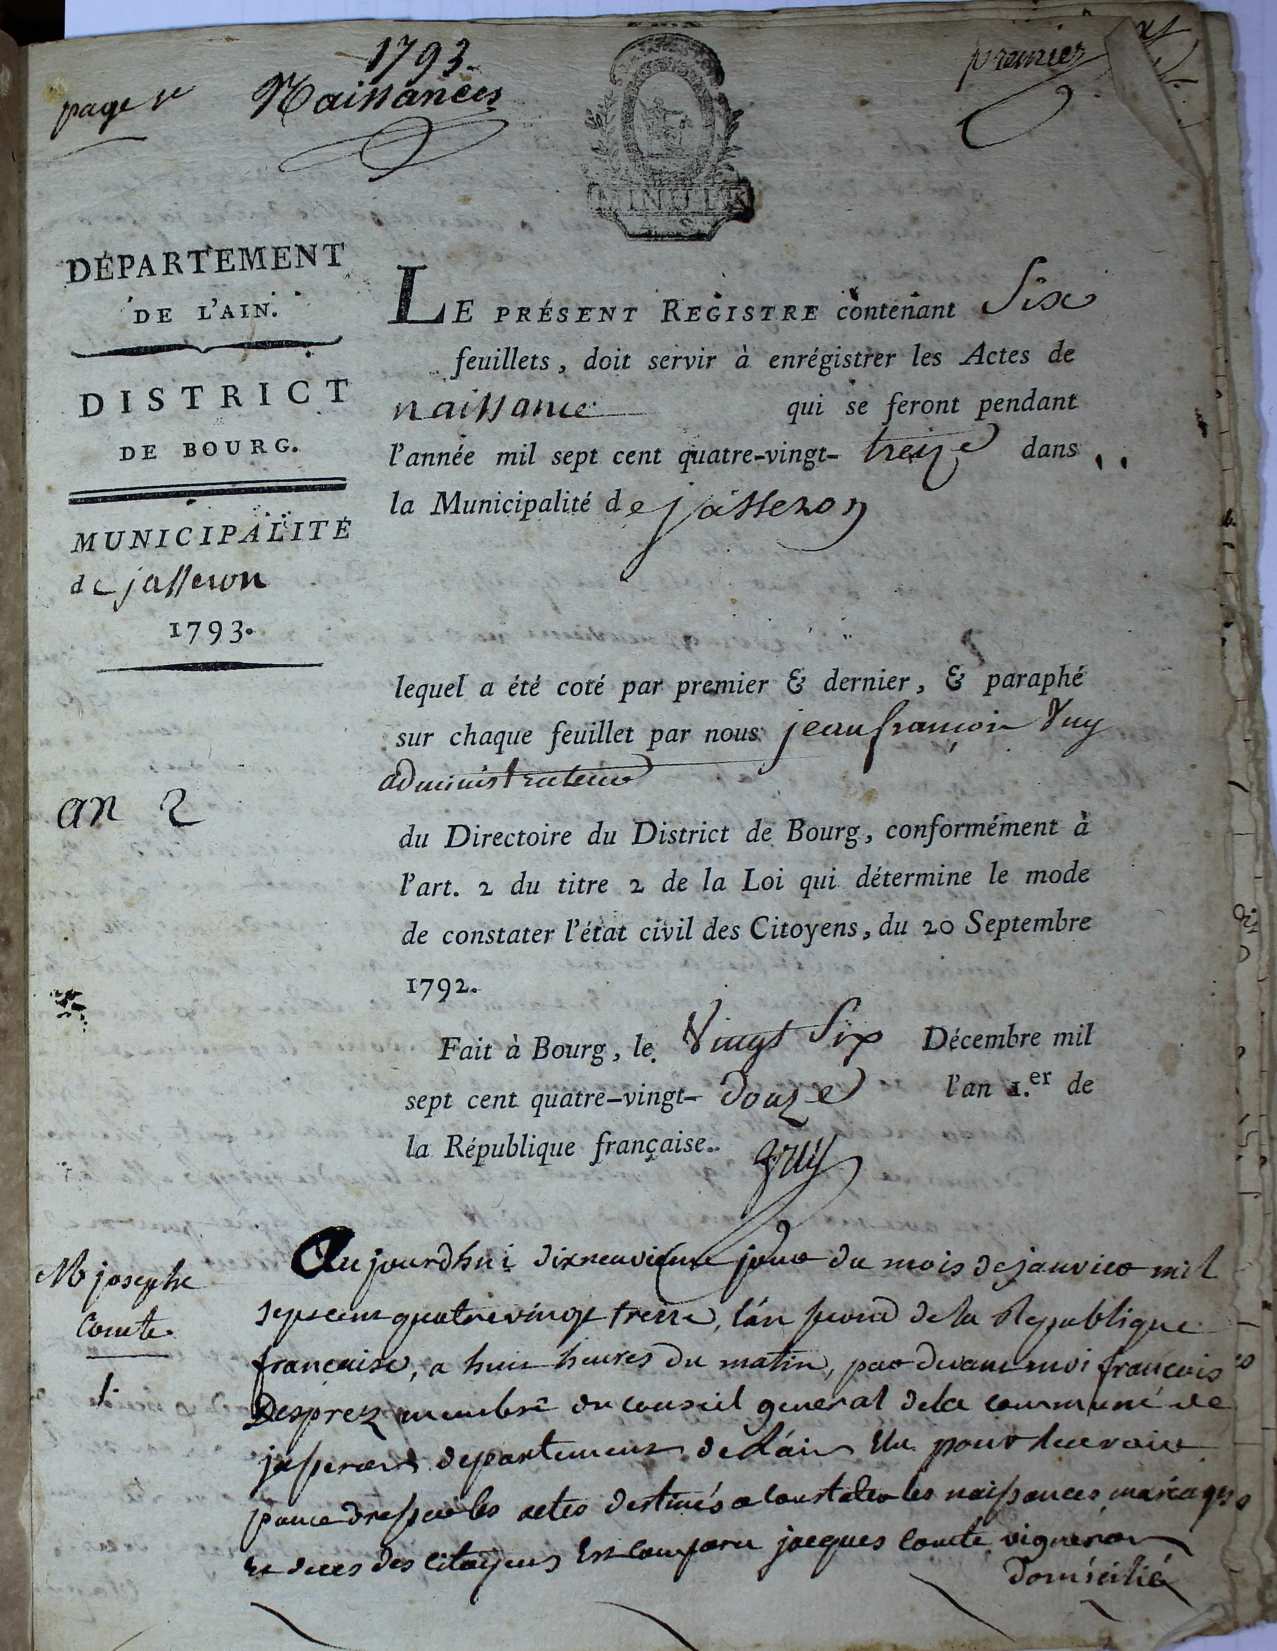 1793.
page 1re Naissances
premier
MINUTES
DÉPARTEMENT
DE L'AIN.
DISTRICT
DE BOURG.
MUNICIPALITÉ
de jasseron
1793.
an 2
LE PRÉSENT REGISTRE contenant Six
feuillets, doit servir à enrégistrer les Actes de
naissance qui se feront pendant
l'année mil sept cent quatre-vingt-treize dans
la Municipalité de jasseron
lequel a été coté par premier & dernier, & paraphé
sur chaque feuillet par nous jean françois Vuy
administrateur
du Directoire du District de Bourg, conformément à
l'art. 2 du titre 2 de la Loi qui détermine le mode
de constater l'état civil des Citoyens, du 20 Septembre
1792.
Fait à Bourg, le Vingt Six Décembre mil
sept cent quatre-vingt-douze l'an 1.er de
la République française.
M josephe
Comte
1.
Au jourdhui dixneuvieme jour du mois de janvier mil
sept cent quatre vingt treize, l'an second de la Republique
francaise, a huit heures du matin, par devant moi francois
Desprez membre du conseil general de la commune de
jasseron departement de l'ain Elu pour recevoir
pour dresser les actes destinés a constater les naissances mariages
et deces des citoyens Est comparu jacques comte vigneron
domicilié